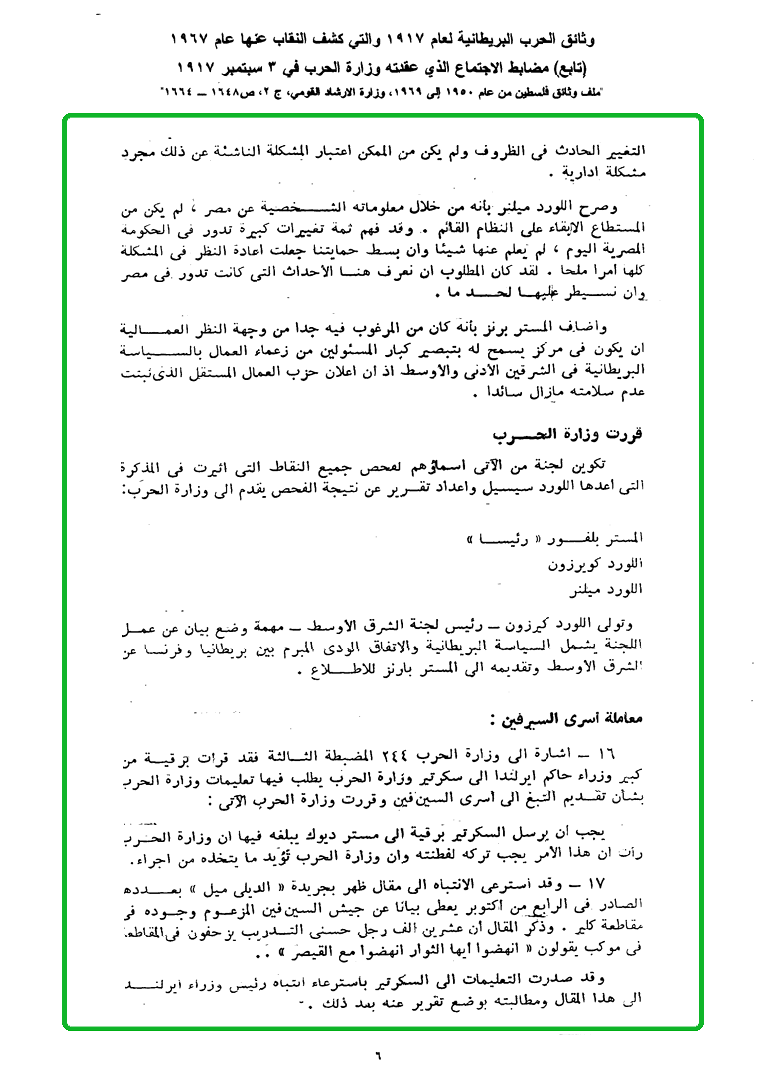 وثائق الحرب البريطانية لعام ١٩١٧ والتي كشف النقاب عنها عام ١٩٦٧
(تابع) مضابط الاجتماع الذي عقدته وزارة الحرب في ٣ سبتمبر ١٩١٧
"ملف وثائق فلسطين من عام ١٩٥٠ إلى ١٩٦٩، وزارة الارشاد القومي، ج ٢، ص١٦٤٨ ــ ١٦٦٤"
التغيير الحادث فى الظروف ولم يكن من الممكن اعتبار المشكلة الناشئة عن ذلك مجرد
مشكلة ادارية .
وصرح اللورد ميلنر بأنه من خلال معلوماته الشخصية عن مصر ، لم يكن من
المستطاع الابقاء على النظام القائم . وقد فهم ثمة تغييرات كبيرة تدور فى الحكومه
المصرية اليوم ، لم يعلم عنها شيئا وان بسط حمايتنا جعلت اعادة النظر فى المشكلة
كلها أمرا ملحا . لقد كان المطلوب ان نعرف هنا الاحداث التى كانت تدور فى مصر
وان نسيطر عليها لحد ما .
واضاف المستر برنز بأنه كان من المرغوب فيه جدا من وجهة النظر العمالية
ان يكون فى مركز يسمح له بتبصير كبار المسئولين من زعماء العمال بالسياسة
البريطانية فى الشرقين الأدنى والأوسط اذ ان اعلان حزب العمال المستقل الذى ثبتت
عدم سلامته مازال سائدا .
قررت وزارة الحرب
تكوين لجنة من الآتى اسماؤهم لفحص جميع النقاط التى اثيرت فى المذكرة
التى أعدها اللورد سيسيل واعداد تقرير عن نتيجة الفحص يقدم الى وزارة الحرب:
المستر بلفور « رئيسا »
اللورد كويرزون
اللورد ميلنر
وتولى اللورد كيرزون ــ رئيس لجنة الشرق الأوسط ــ مهمة وضع بيان عن عمل
اللجنة يشمل السياسة البريطانية والاتفاق الودى المبرم بين بريطانيا وفرنسا عن
الشرق الأوسط وتقديمه الى المستر بارنز للاطلاع .
معاملة أسرى السيرفين :
١٦ ــ اشارة الى وزارة الحرب ٢٤٤ المضبطة الثالثة فقد قرات برقية من
كبير وزراء حاكم ايرلندا الى سكرتير وزارة الحرب يطلب فيها تعليمات وزارة الحرب
بشأن تقديم التبغ الى أسرى السين فين وقررت وزارة الحرب الآتى :
يجب ان يرسل السكرتير برقية الى مستر ديوك يبلغه فيها ان وزارة الحرب
رأت ان هذا الأمر يجب تركه لفطنته وان وزارة الحرب تؤيد ما يتخذه من اجراء.
١٧ ــ وقد أسترعى الانتباه الى مقال ظهر بجريدة « الديلى ميل » بعددها
الصادر فى الرابع من أكتوبر يعطى بيانا عن جيش السين فين المزعوم وجوده فى
مقاطعة كلير . وذكر المقال أن عشرين الف رجل حسنى التدريب يزحفون فى المقاطعة
فى موكب يقولون « انهضوا أيها الثوار انهضوا مع القيصر » . .
وقد صدرت التعليمات الى السكرتير باسترعاء انتباه رئيس وزراء ايرلندا
الى هذا المقال ومطالبته بوضع تقرير عنه بعد ذلك .
٦